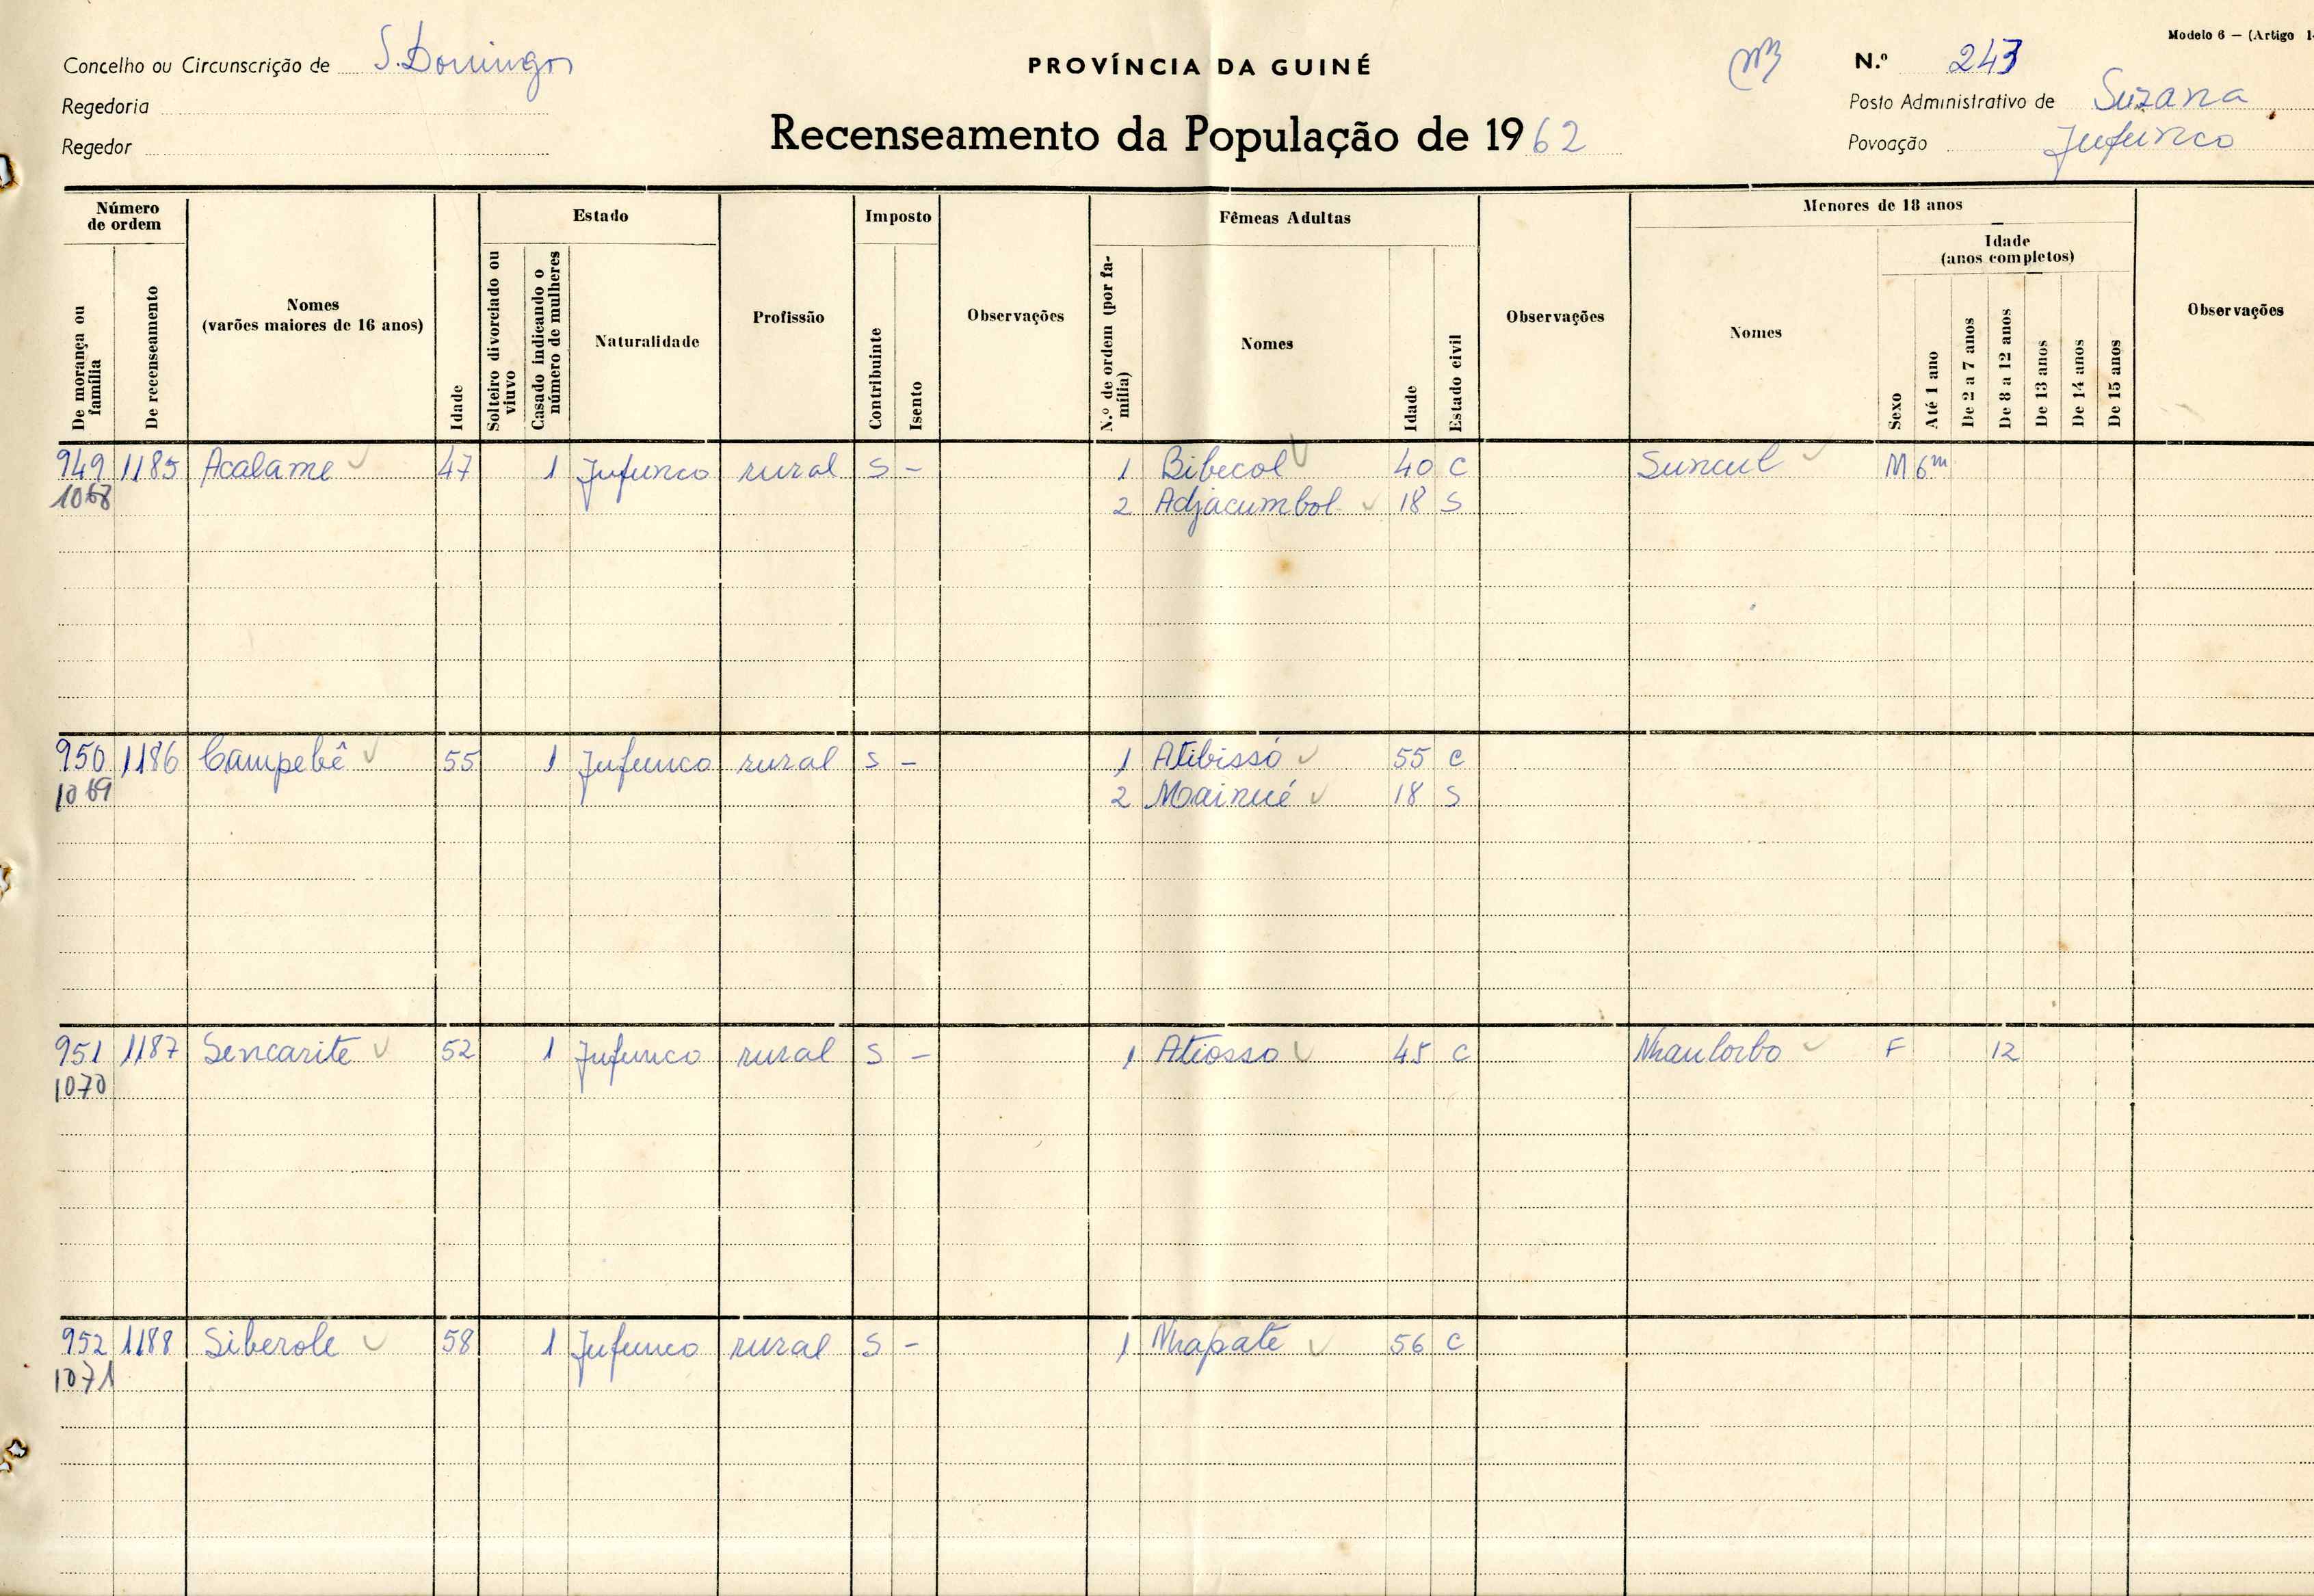 Modelo 6 — (Artigo 1
Concelho ou Circunscrição de S. Domingos
PROVÍNCIA DA GUINÉ
N.º 243
Regedoria
Posto Administrativo de Suzana
Regedor
Recenseamento da População de 1962
Povoação Jufunco
Número de ordem
De morança ou família
De recenseamento
Nomes
(varões maiores de 16 anos)
Idade
Estado
Solteiro divorciado ou viuvo
Casado indicando o número de mulheres
Naturalidade
Profissão
Imposto
Contribuinte
Isento
Observações
Fêmeas Adultas
N.º de ordem (por família)
Nomes
Idade
Estado civil
Observações
Menores de 18 anos
Nomes
Sexo
Idade
(anos completos)
Até 1 ano
De 2 a 7 anos
De 8 a 12 anos
De 13 anos
De 14 anos
De 15 anos
Observações
949 1185 Acalame 47 1 Jufunco rural S - 1 Bibecol 40 C Suncul M 6m
1068 2 Adjacumbol 18 S
950 1186 Campebê 55 1 Jufunco rural S - 1 Atibissó 55 C
1069 2 Mainué 18 S
951 1187 Sencarite 52 1 Jufunco rural S - 1 Atiosso 45 C F 12
1070
952 1188 Siberole 58 1 Jufunco rural S - 1 Nhapate 56 C
1071